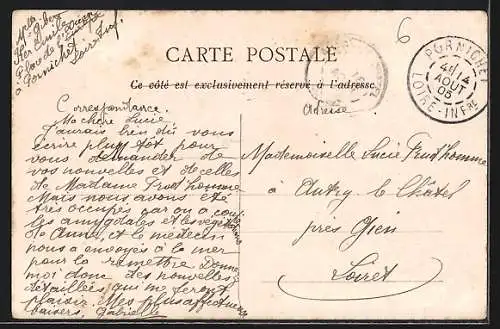 CARTE POSTALE
Ce côté est exclusivement réservé à l'adresse
6
PORNICHET
4E 14
AOUT
05
LOIRE-INFRE
Place de
à Pornichet
Loire Inf.
Correspondance.
Adresse
Ma chère Lucie
J'aurais bien dû vous
écrire plus tôt pour
vous demander de
vos nouvelles et de celles
de Madame Prud'homme
Mais nous avons été
très occupés car on a coupé
les amygdales et les végétations
de Anne, et le médecin
nous a envoyés à la mer
pour la remettre Donne
moi donc des nouvelles
détaillées qui me feront
plaisir. Mes plus affectueux
baisers, Gabrielle
Mademoiselle Lucie Prud'homme
à Autry le Châtel
près Gien
Loiret